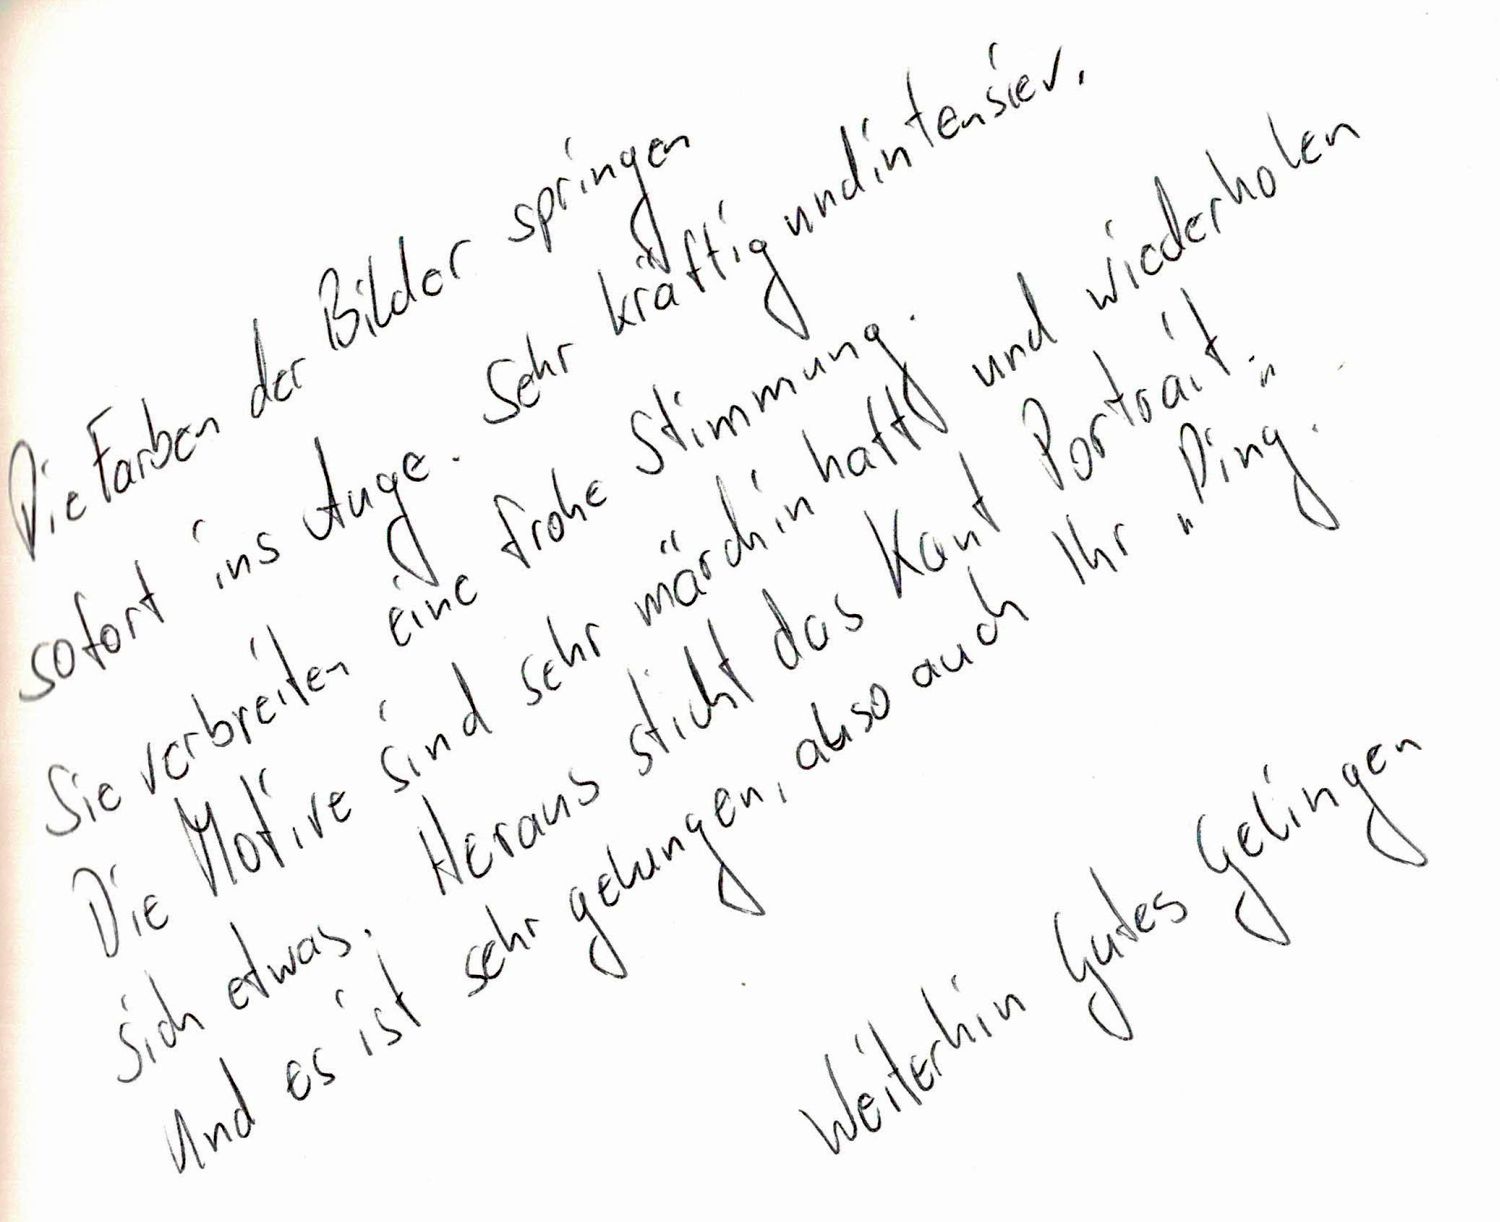 Die Farben der Bilder springen
sofort ins Auge. Sehr kräftig und intensiev.
Sie verbreiten eine frohe Stimmung.
Die Motive sind sehr märchinhaft und wiederholen
sich etwas. Heraus sticht das Kant Portrait.
Und es ist sehr gelungen, also auch Ihr „Ding“.
Weiterhin Gutes Gelingen